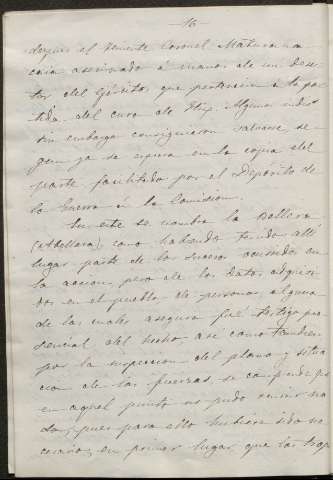 —16—
despues el Teniente Coronel
caia asesinado á manos de un deser-
tor del Ejército, que pertenecia á la par-
tida del cura de Flix. Algunos
sin embargo consiguieron salvarse, se-
gun ya se espresa en la copia del
parte facilitado por el Depósito de
la Guerra á la Comision.
En este se nombra la Pallera
como habiendo tenido allí
lugar parte de los sucesos ocurridos en
la accion, pero de los datos adquiri-
dos en el pueblo de personas, alguna
de las cuales asegura fué testigo pre-
sencial del hecho, asi como tambien
por la inspeccion del plano y situa-
cion de las fuerzas, se comprende que
en aquel punto no pudo ocurrir na-
da, pues para ello hubiera sido ne-
cesario, en primer lugar, que las trop